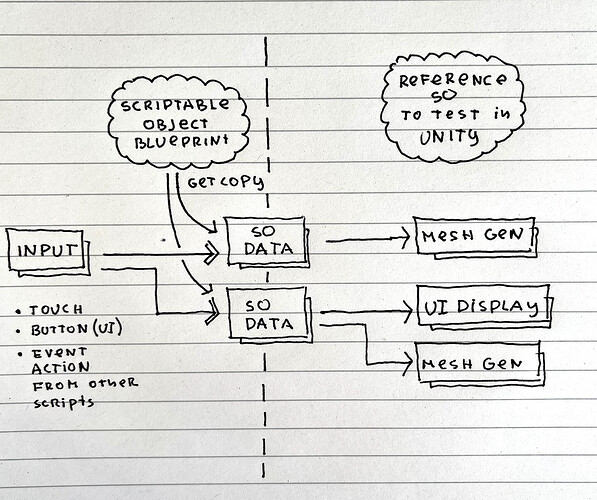 SCRIPTABLE
OBJECT
BLUEPRINT
REFERENCE
SO
TO TEST in
UNITY
GET COPY
INPUT
SO
DATA
MESH GEN
SO
DATA
UI DISPLAY
MESH GEN
• TOUCH
• BUTTON (UI)
• EVENT
ACTION
FROM other
scripts